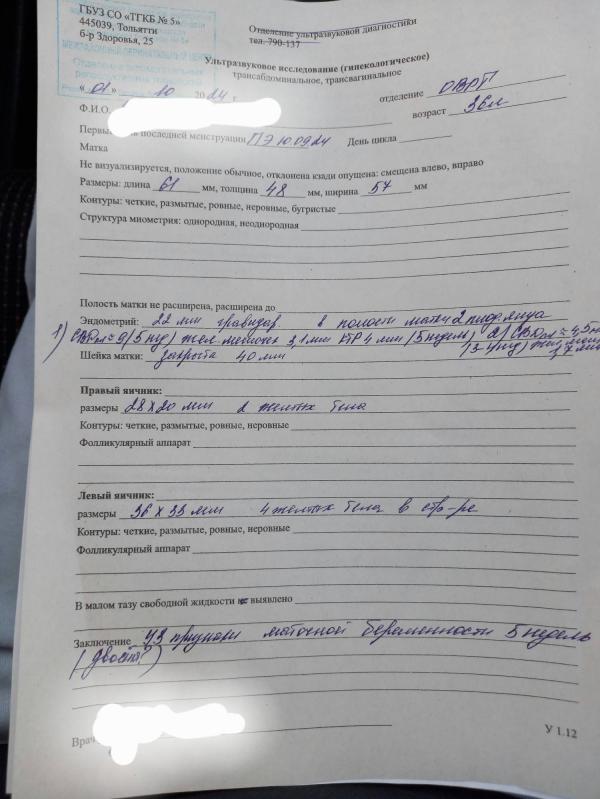 ГБУЗ СО «ТГКБ № 5»
445039, Тольятти
б-р Здоровья, 25
Отделение ультразвуковой диагностики
тел. 790-137
Ультразвуковое исследование (гинекологическое)
трансабдоминальное, трансвагинальное
« 01 » 10 2024 г. отделение ОВРТ
Ф.И.О. возраст 36л
последней менструации ПЭ 10.09.24 День цикла
Матка
Не визуализируется, положение обычное, отклонена кзади опущена: смещена влево, вправо
Размеры: длина 61 мм, толщина 48 мм, ширина 57 мм
Контуры: четкие, размытые, ровные, неровные, бугристые
Структура миометрия: однородная, неоднородная
Полость матки не расширена, расширена до
Эндометрий: 22 мм гравидар в полости матки 2 плод. яйца
1) СВD пл = 9 (5 нед) жел. мешочек 3,1 мм КТР 4 мм (5 недель) 2) СВD пл = 4,5
(3-4 нед) жел. 1,7 мм
Шейка матки: закрыта 40 мм
Правый яичник:
размеры 28 х 20 мм 2 желтых тела
Контуры: четкие, размытые, ровные, неровные
Фолликулярный аппарат
Левый яичник:
размеры 36 х 33 мм 4 желтых тела в стр-ре
Контуры: четкие, размытые, ровные, неровные
Фолликулярный аппарат
В малом тазу свободной жидкости не выявлено
Заключение УЗ признаки маточной беременности 5 недель
(двойня?)
Врач
У 1.12